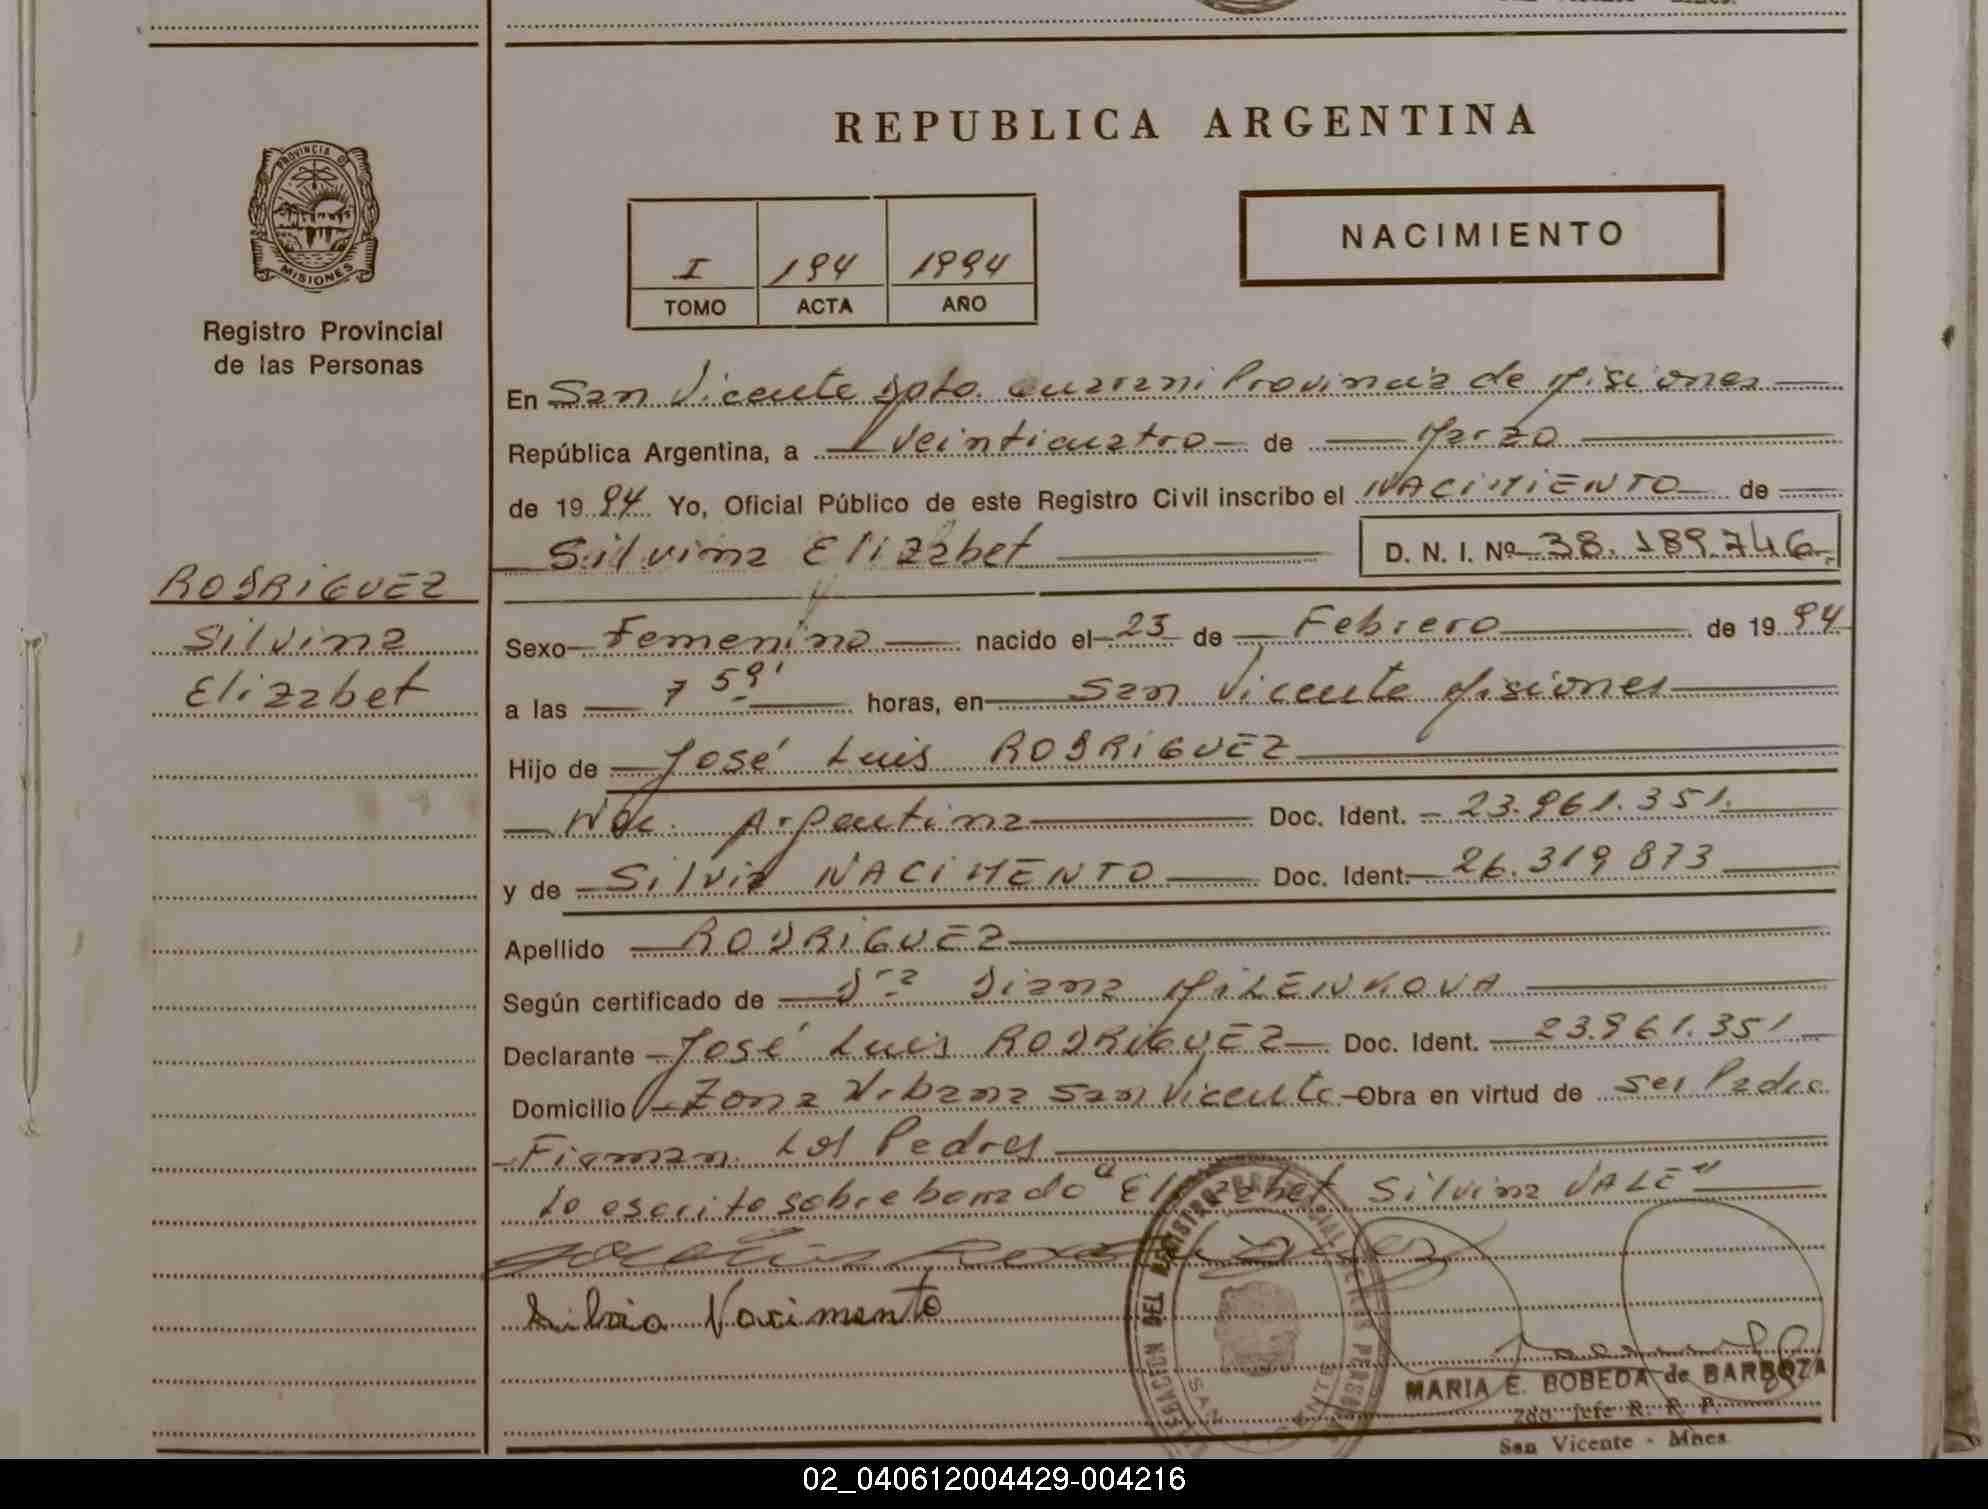 REPUBLICA ARGENTINA
PROVINCIA DE
MISIONES
Registro Provincial
de las Personas
I 194 1994
TOMO ACTA AÑO
NACIMIENTO
En San Vicente Dpto. Guarani Provincia de Misiones
República Argentina, a Veinticuatro de Marzo
de 1994 Yo, Oficial Público de este Registro Civil inscribo el NACIMIENTO de
Silvina Elizabet D. N. I. Nº 38.189.746
RODRIGUEZ
Silvina
Elizabet
Sexo Femenino nacido el 23 de Febrero de 1994
a las 7 59' horas, en San Vicente Misiones
Hijo de José Luis RODRIGUEZ
Nac. Argentina Doc. Ident. 23.961.351.
y de Silvia NACIMENTO Doc. Ident. 26.319 873
Apellido RODRIGUEZ
Según certificado de Dra Diana MILENKOVA
Declarante José Luis RODRIGUEZ Doc. Ident. 23.961.351
Domicilio Zona Urbana San Vicente Obra en virtud de ser Padre
Firman Los Padres
Lo escrito sobre borrado "Elizabet Silvina VALE"
Silvia Nacimento
SAN VICENTE
MARIA E. BOBEDA de BARBOZA
2do. Jefe R. P. P.
San Vicente - Mnes
02_040612004429-004216